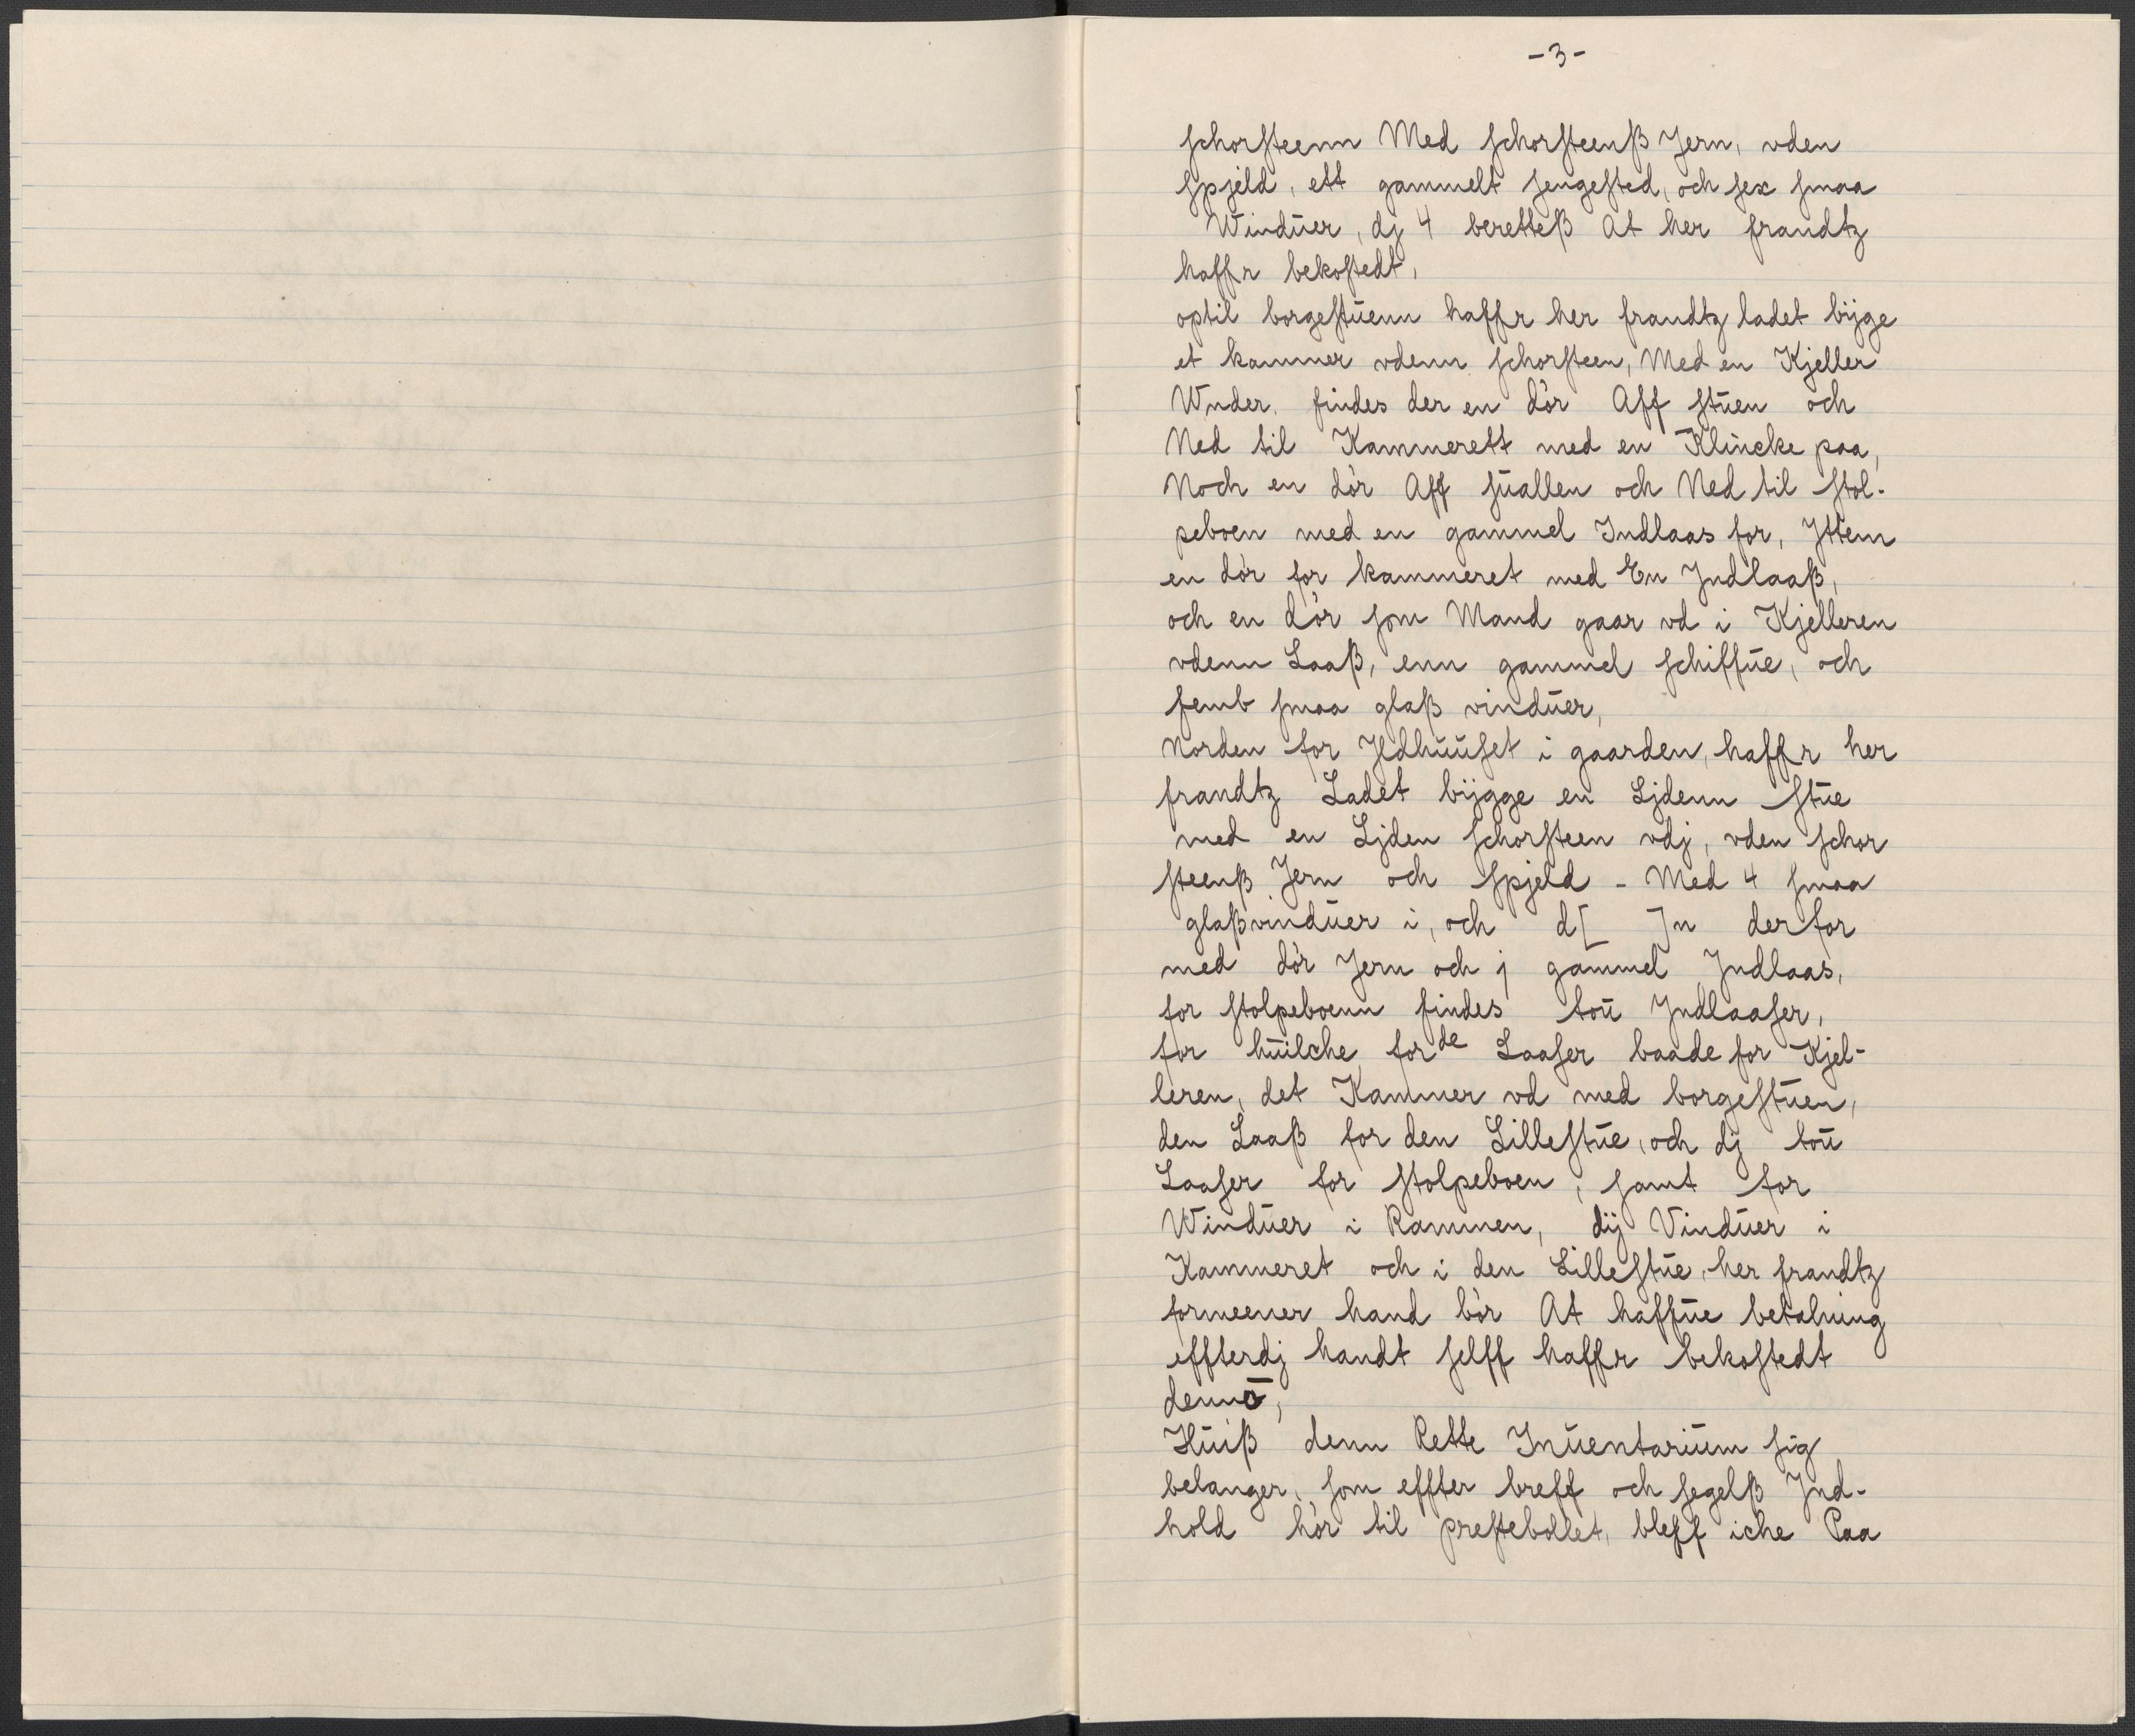 -3-
schorsteenn Med schorsteenß Jern, vden
spjeld, ett gammelt sengested, och sex smaa
Windūer, dj 4 beretteß At her frandtz
haffr bekostedt,
optil borgestūenn haffr her frandtz ladet bÿge
et kammer vdenn schorsteen, Med en Kjeller
Wnder, findes der en dör Aff stūen och
Ned til Kammerett med en Klincke paa,
Noch en dör Aff sūallen och Ned til stol-
peboen med en gammel Indlaas for, Jttem
en dör for kammeret med En Jndlaaß,
och en dör som Mand gaar vd i Kjelleren
vdenn Laaß, enn gammel schiffūe, och
femb smaa glaß vindūer,
Norden for Jldhūūset i gaarden, haffr her
frandtz Ladet bÿgge en Ljdenn stūe
med en Ljden schorsteen vdj, vden schor
steenß Jern och spjeld - Med 4 smaa
glaßvindūer i, och d[ ]n derfor
med dör Jern och j gammel Jndlaas,
for stolpeboenn findes toū Jndlaaser,
for hūilche for de Laaser baade for Kjel-
leren, det Kammer vd med borgestūen,
den Laaß for den Lillestūe, och dj toū
Laaser for stolpeboen, samt for
Windūer i Rammen, dÿ Vindūer i
Kammeret och i den Lillestūe, her frandtz
formeener hand bör At haffūe betalning
effterdj handt selff haffr bekostedt
dennō,
Hūiß denn Rette Inūentariūm sig
belanger, som effter breff och segelß Jnd-
hold hör til prestebollet, bleff iche Paa